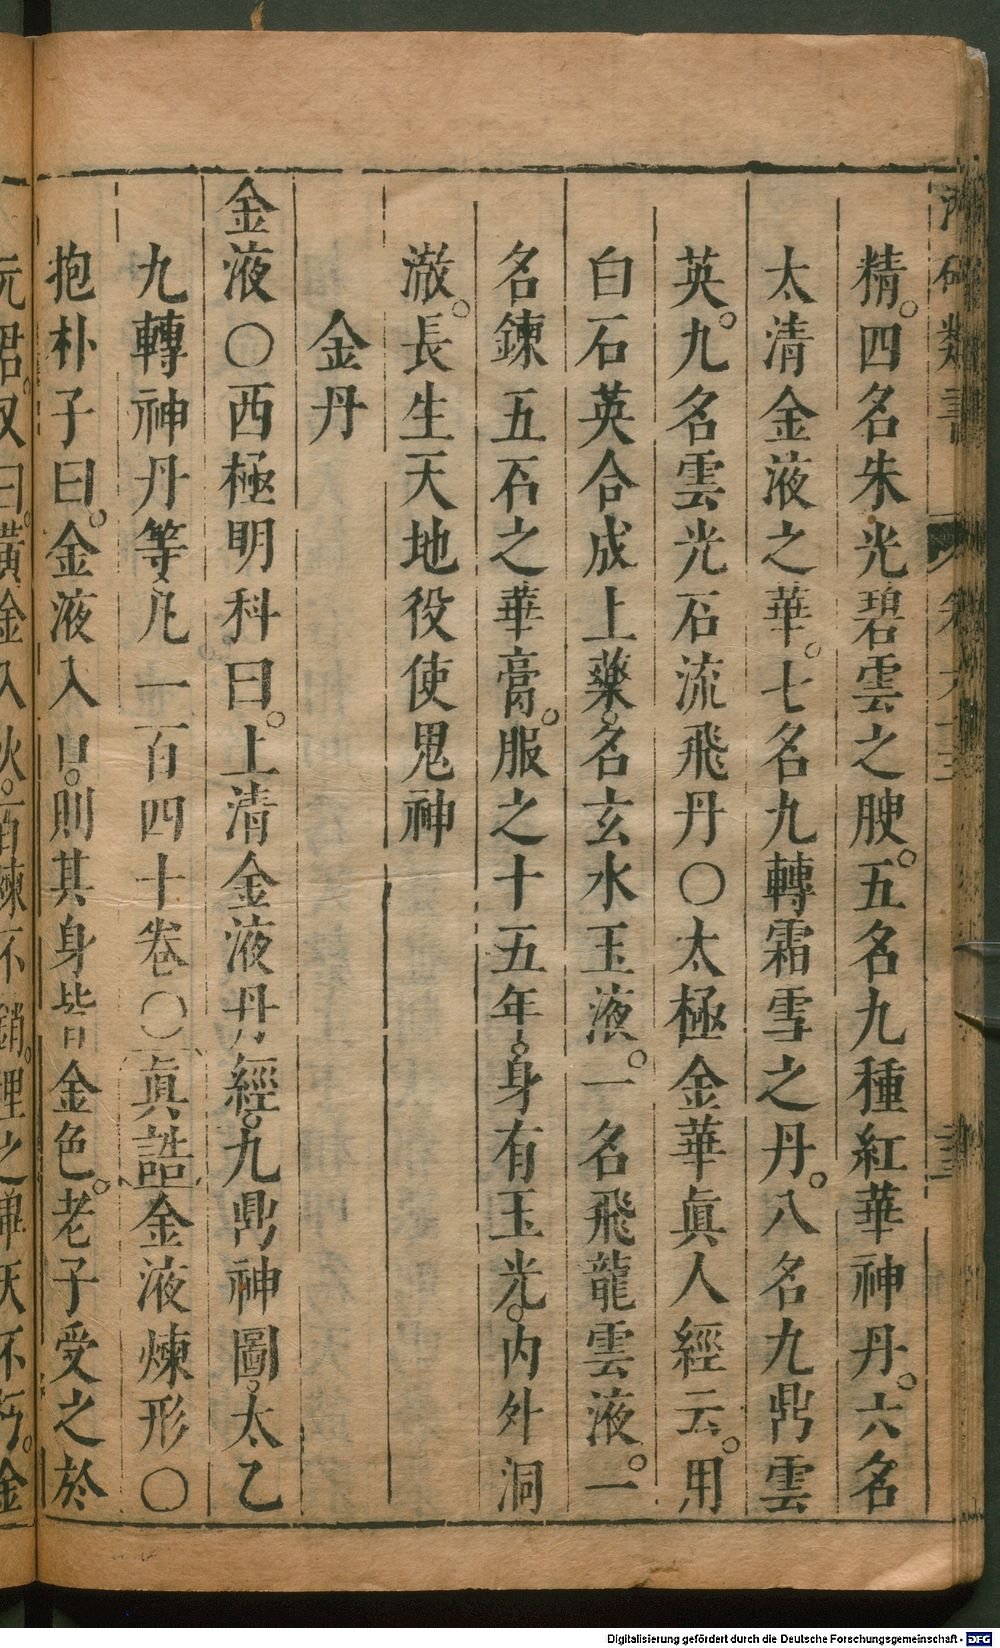 精。四名朱光碧雲之腴。五名九種紅華神丹。六名
太清金液之華。七名九轉霜雪之丹。八名九鼎雲
英。九名雲光石流飛丹〇太極金華眞人經云。用
白石英合成上藥。名玄水玉液。一名飛龍雲液。一
名鍊五石之華膏。服之十五年。身有玉光。內外洞
澈。長生天地役使鬼神
金丹
金液〇西極明科曰。上清金液丹經。九鼎神圖。太乙
九轉神丹等。凡一百四十卷〇眞誥金液煉形〇
抱朴子曰。金液入口。則其身皆金色。老子受之於
元君。又曰。黃金入火。百煉不銷。埋之畢天不朽。金
Digitalisierung gefördert durch die Deutsche Forschungsgemeinschaft - DFG